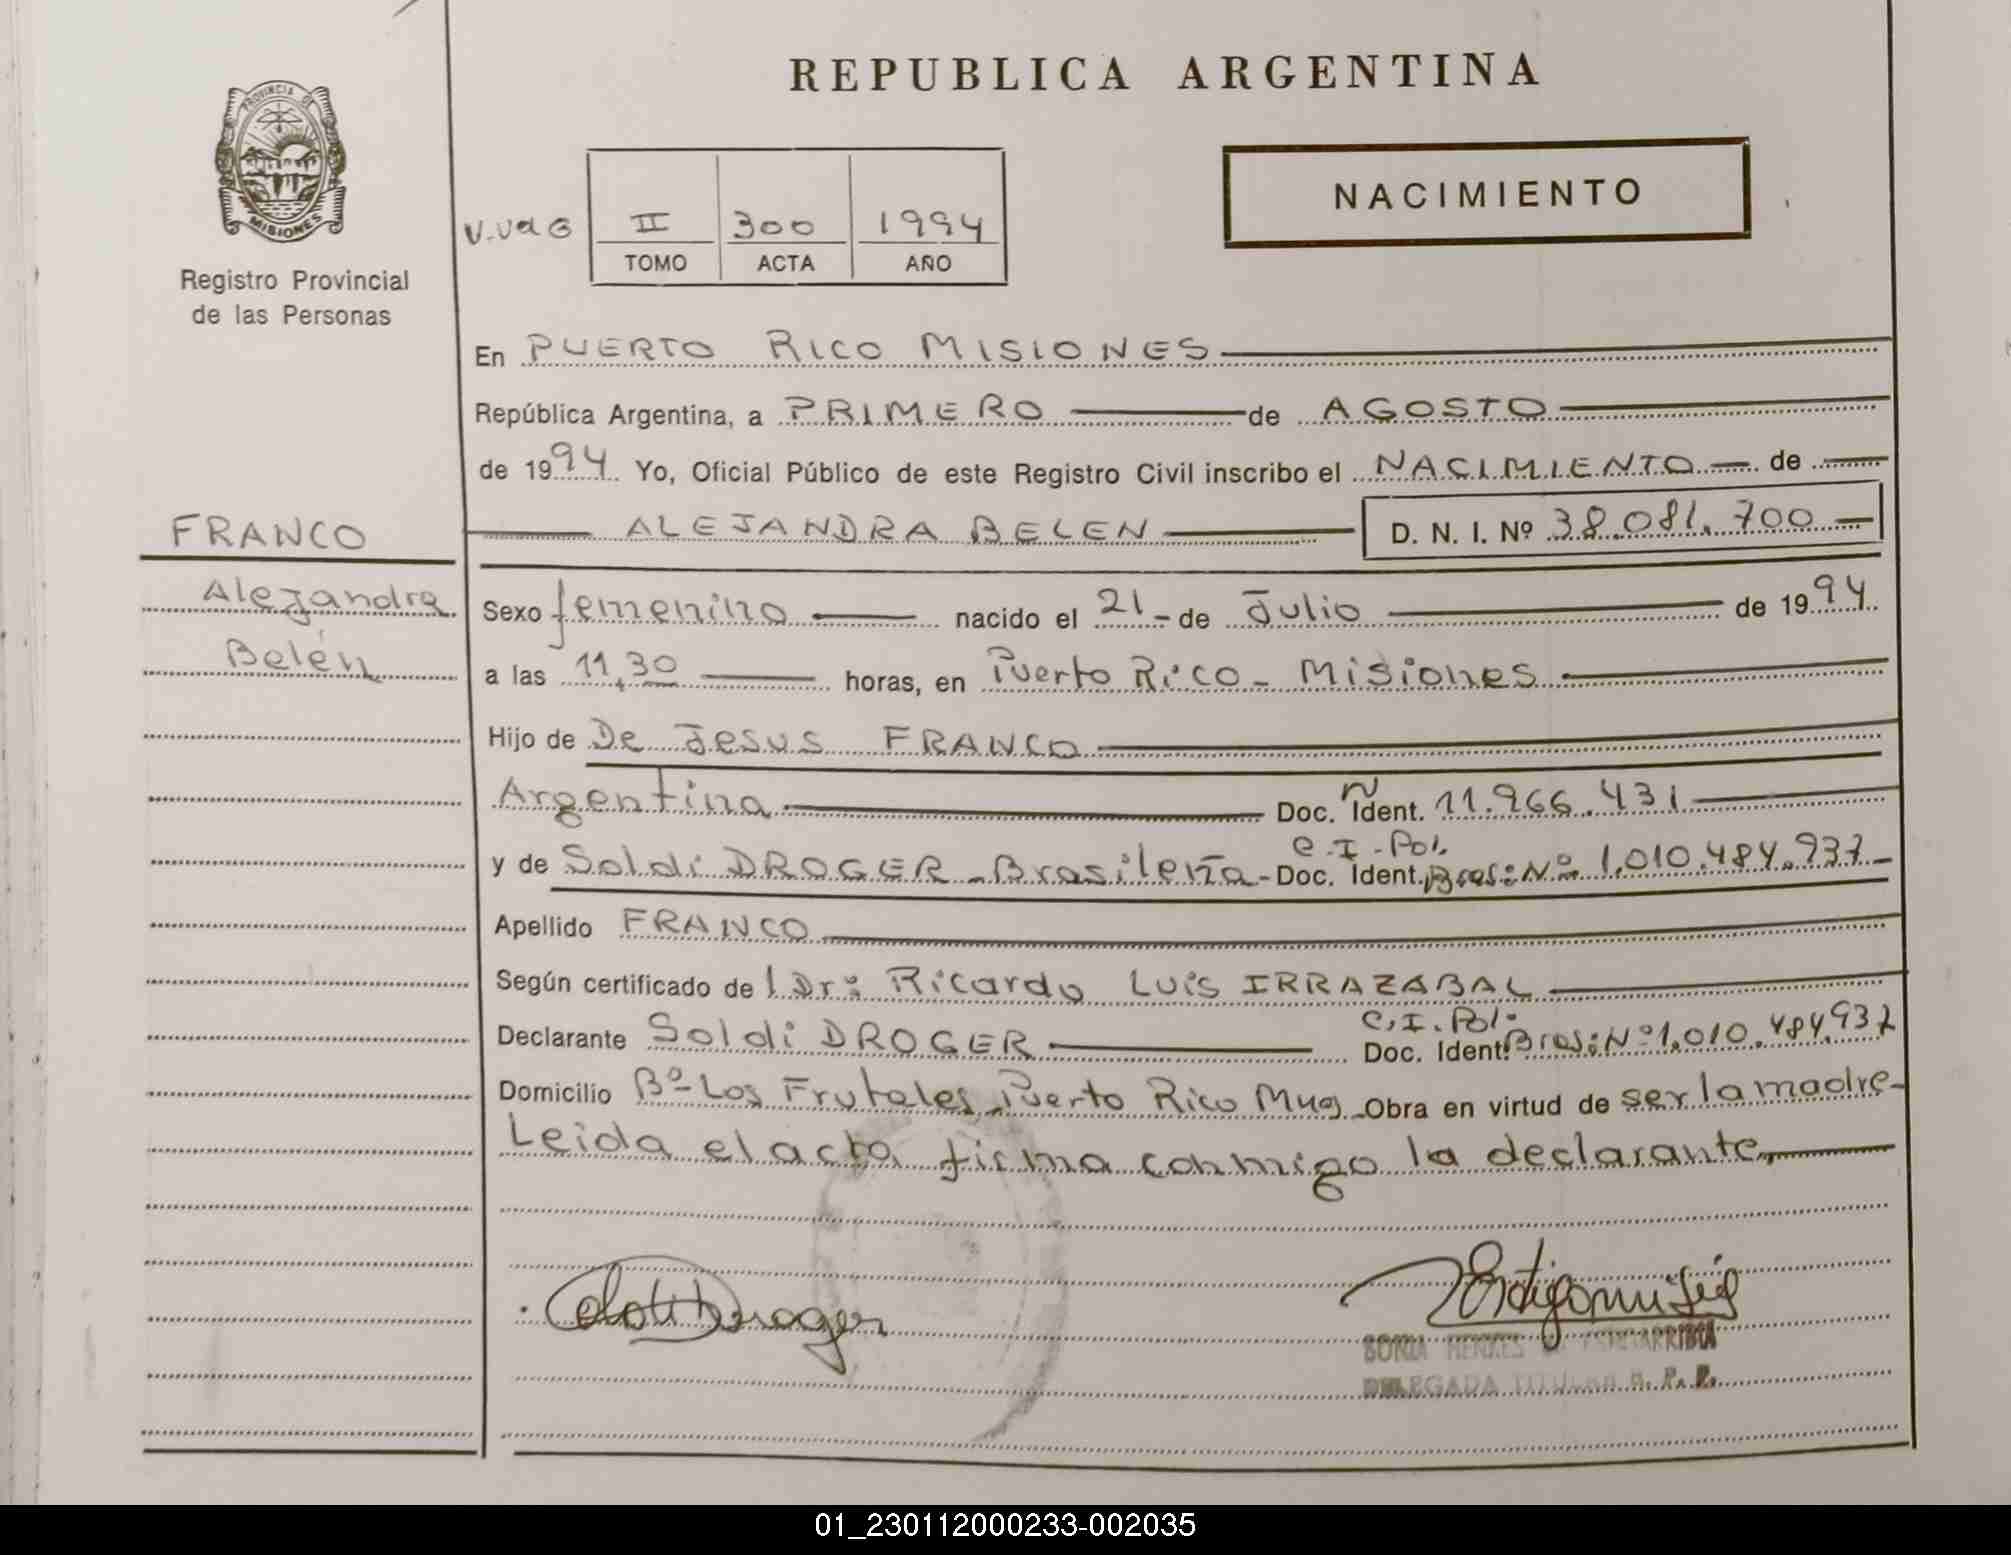 REPUBLICA ARGENTINA
PROVINCIA DE
MISIONES
Registro Provincial
de las Personas
NACIMIENTO
II 300 1994
TOMO ACTA AÑO
En PUERTO RICO MISIONES
República Argentina, a PRIMERO de AGOSTO
de 1994 Yo, Oficial Público de este Registro Civil inscribo el NACIMIENTO de
FRANCO
ALEJANDRA BELEN D. N. I. Nº 38.081.700
Alejandra
Belén
Sexo femenino nacido el 21 - de Julio de 1994
a las 11,30 horas, en Puerto Rico - Misiones
Hijo de De Jesus FRANCO
Argentina Doc. Ident. 11.966.431
y de Soldi DROGER - Brasileña - Doc. Ident. C.I.Pol. Bras: Nº 1.010.484.937
Apellido FRANCO
Según certificado del Dr: Ricardo Luis IRRAZABAL
Declarante Soldi DROGER Doc. Ident. C.I.Pol. Bras: Nº 1.010.484.937
Domicilio Bº Los Frutales Puerto Rico Mnes Obra en virtud de ser la madre -
Leida el acta firma conmigo la declarante,
DELEGADA TITULAR R. P. P.
01_230112000233-002035